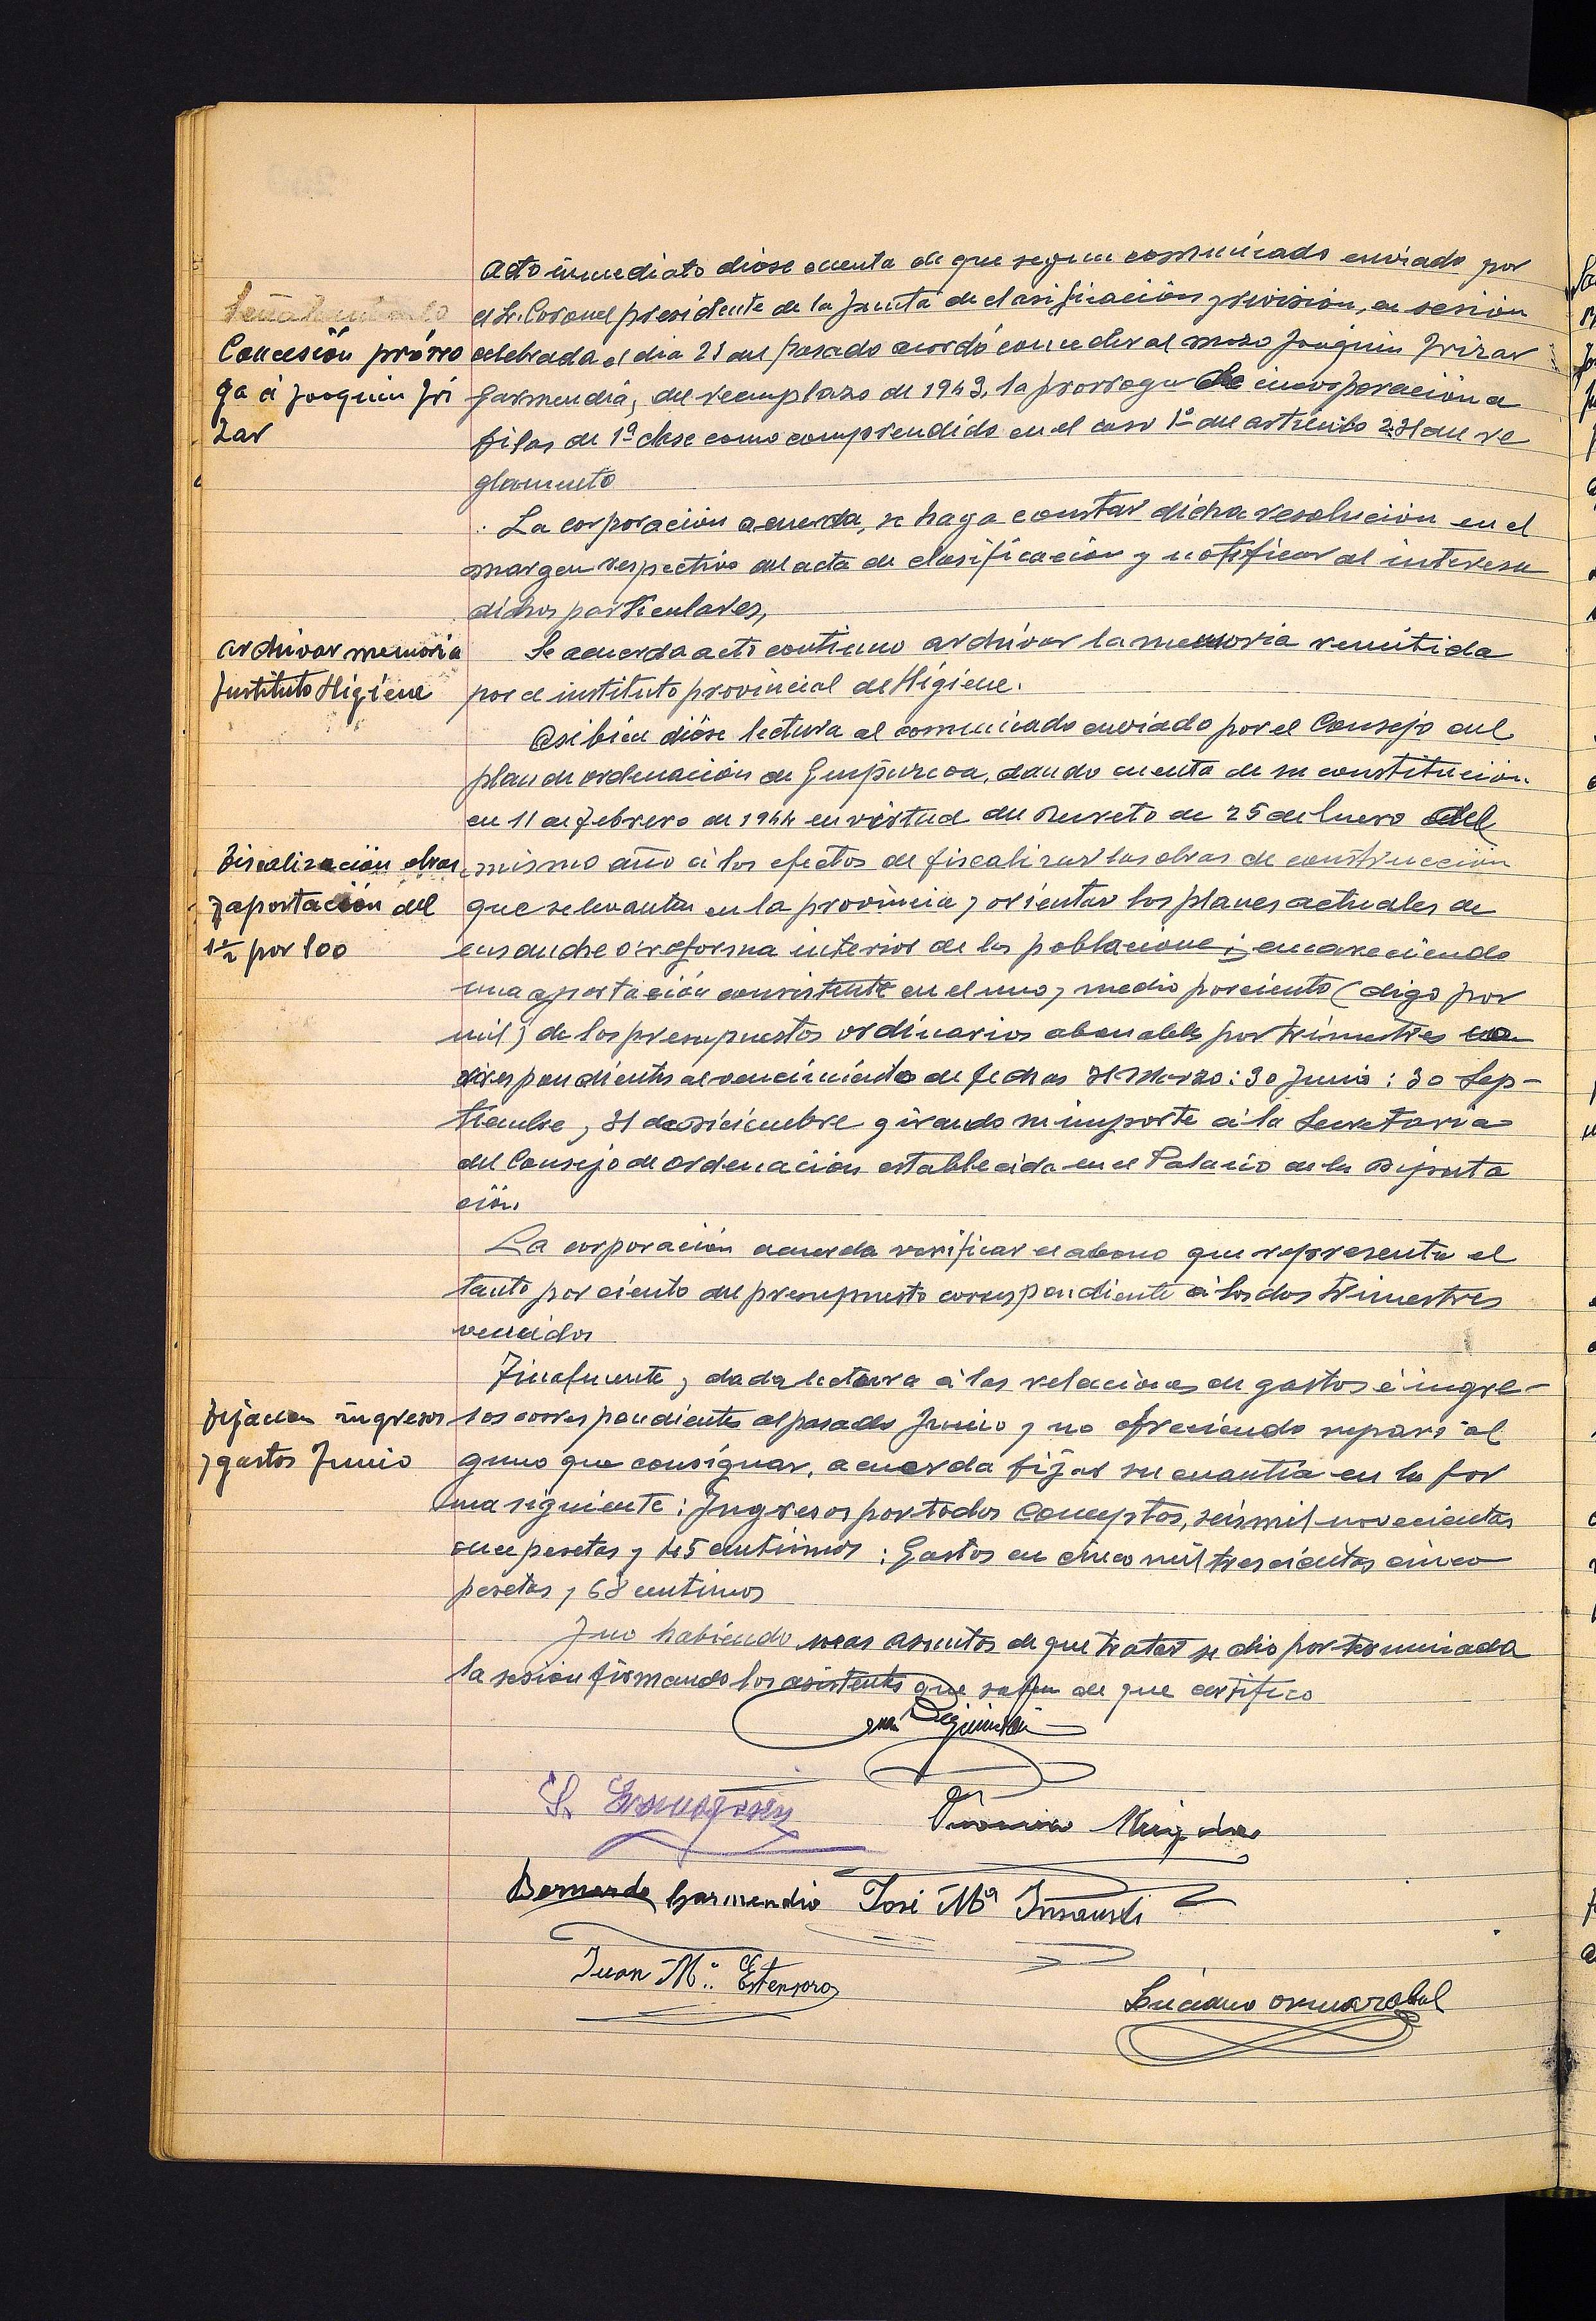 Acto inmediato diose cuenta de que segun comunicado enviado por
el Sr. Coronel presidente de la Junta de clasificación y revisión, en sesion
Concesión prórro
ga á Joaquin Iri
zar
celebrada el dia 21 del pasado acordó conceder al mozo Joaquin Irizar
Garmendia, del reemplazo de 1943, la prorroga de incorporación a
filas de 1ª clase como comprendido en el caso 1º del artículo 231 del re
glamento
La corporación acuerda, se haga constar dicha resolucion en el
margen respectivo del acta de clasificación y notificar al interesa
dichos particulares,
archivar memoria
Instituto Higiene
Se acuerda acto continuo archivar la memoria remitida
por el instituto provincial de Higiene.
Asi bien dióse lectura al comunicado enviado por el Consejo del
plan de ordenación de Guipúzcoa, dando cuenta de su constitución
en 11 de Febrero de 1944 en virtud del Decreto de 25 de Enero del
Fiscalización obras
y aportación del
1½ por 100
mismo año á los efectos de fiscalizar las obras de construcción
que se levanten en la provincia y orientar los planes actuales de
ensanche o reforma interior de las poblaciones; encareciendo
una aportación consistente en el uno y medio por ciento (digo por
mil) de los presupuestos ordinarios abonables por trimestres co
rrespondientes al vencimiento de fechas 31 Marzo: 30 Junio: 30 Sep-
tiembre y 31 de Diciembre girando su importe á la Secretaria
del Consejo de Ordenación establecida en el Palacio de la Diputa
ción.
La corporación acuerda verificar el abono que representa el
tanto por ciento del presupuesto correspondiente á los dos trimestres
vencidos
Fijacion ingresos
y gastos Junio
Finalmente y dada lectura á las relaciones de gastos é ingre-
sos correspondientes al pasado Junio y no ofreciendo reparo al
guno que consignar, acuerda fijar su cuantía en la for
ma siguiente: Ingresos por todos Conceptos, seis mil novecientas
once pesetas y 45 centimos: Gastos en cinco mil trescientas cinco
pesetas y 68 centimos
Y no habiendo mas asuntos de que tratar se dio por terminada
la sesion firmando los asistentes que saben de que certifico
Bernardo Garmendia José Mª Insausti
Juan Mª Estensoro
Luciano Ormazabal